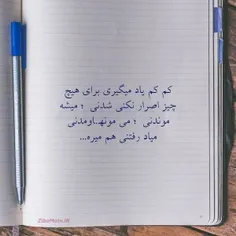 کم کم یاد میگیری برای هیچ
چیز اصرار نکنی شدنی ؛ میشه
موندنی ؛ می مونه..اومدنی
میاد رفتنی هم میره...